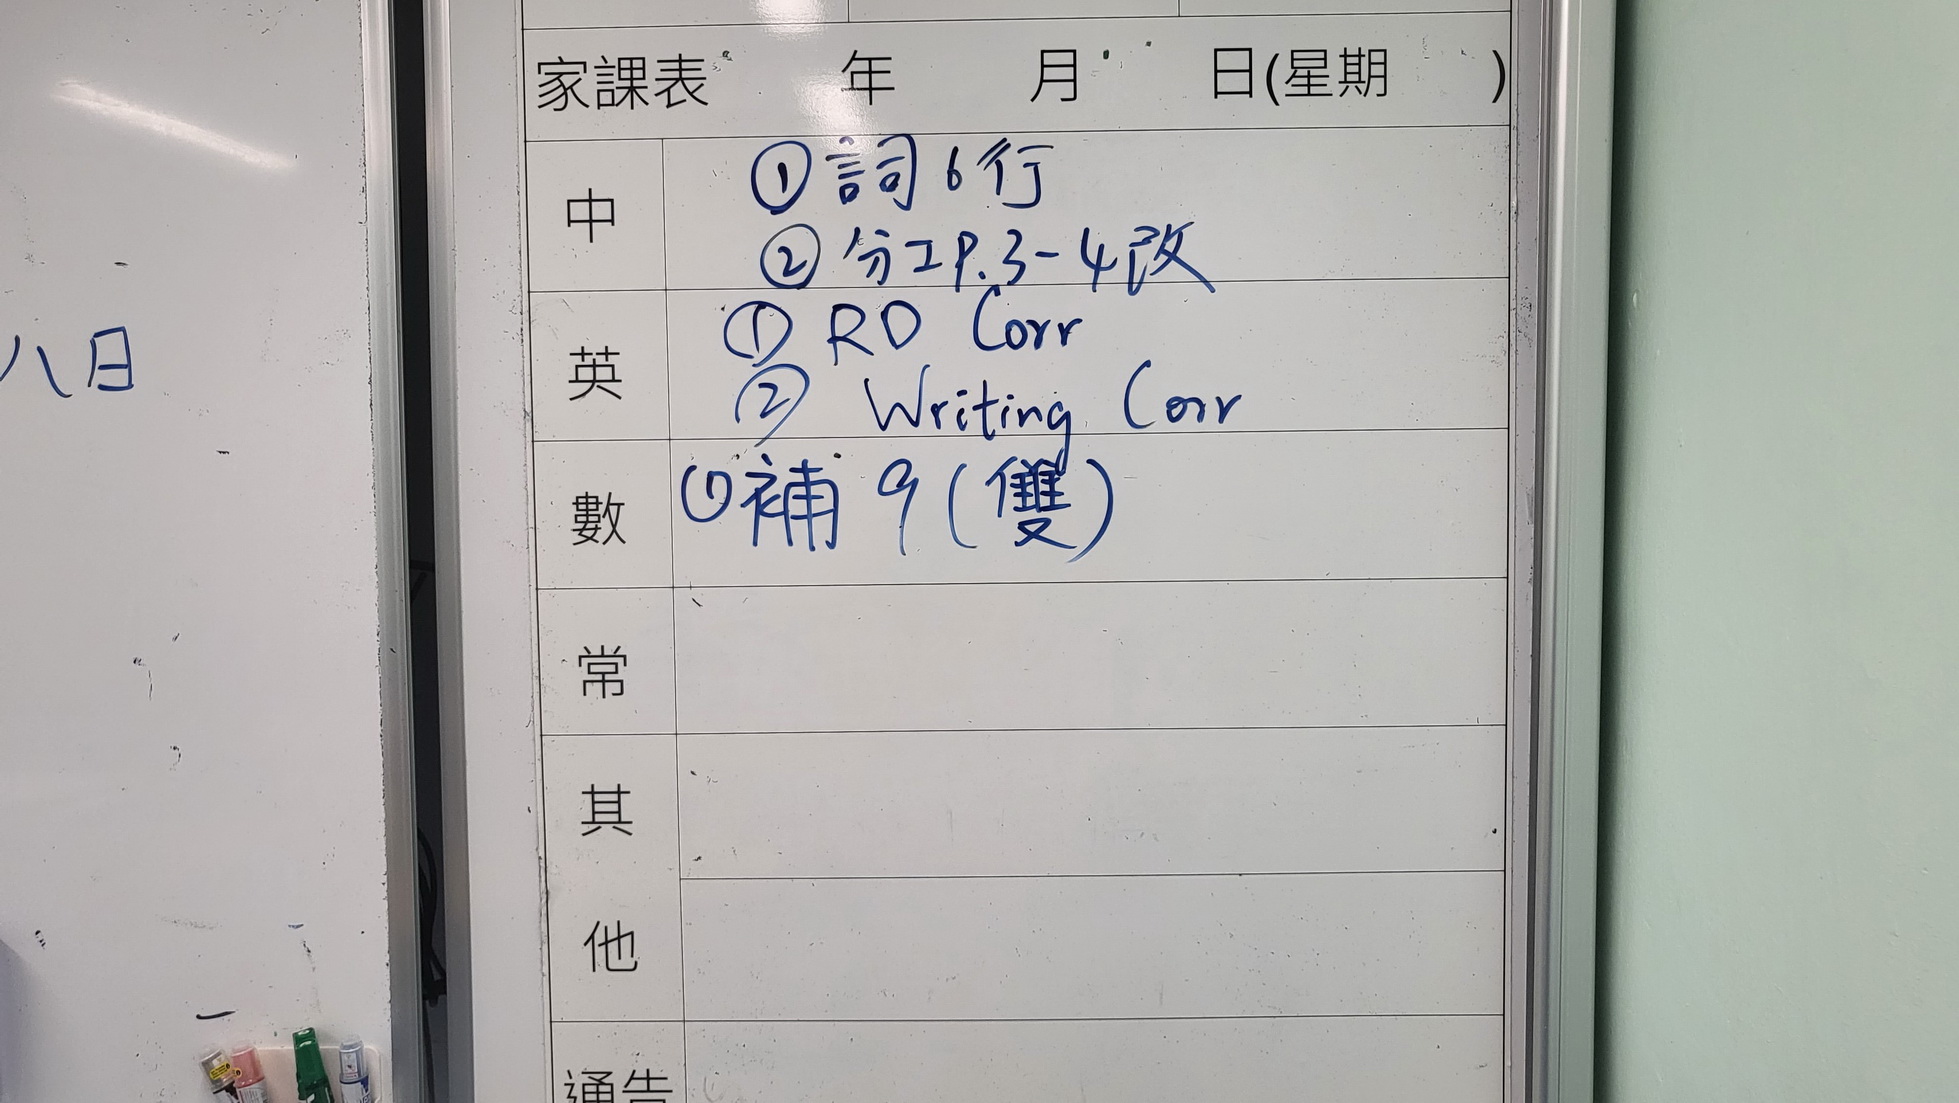 八日
家課表 年 月 日(星期 )
中
①詞6行
②分工P.3-4改
英
① RD Corr
② Writing Corr
數
①補9(雙)
常
其
他
通告